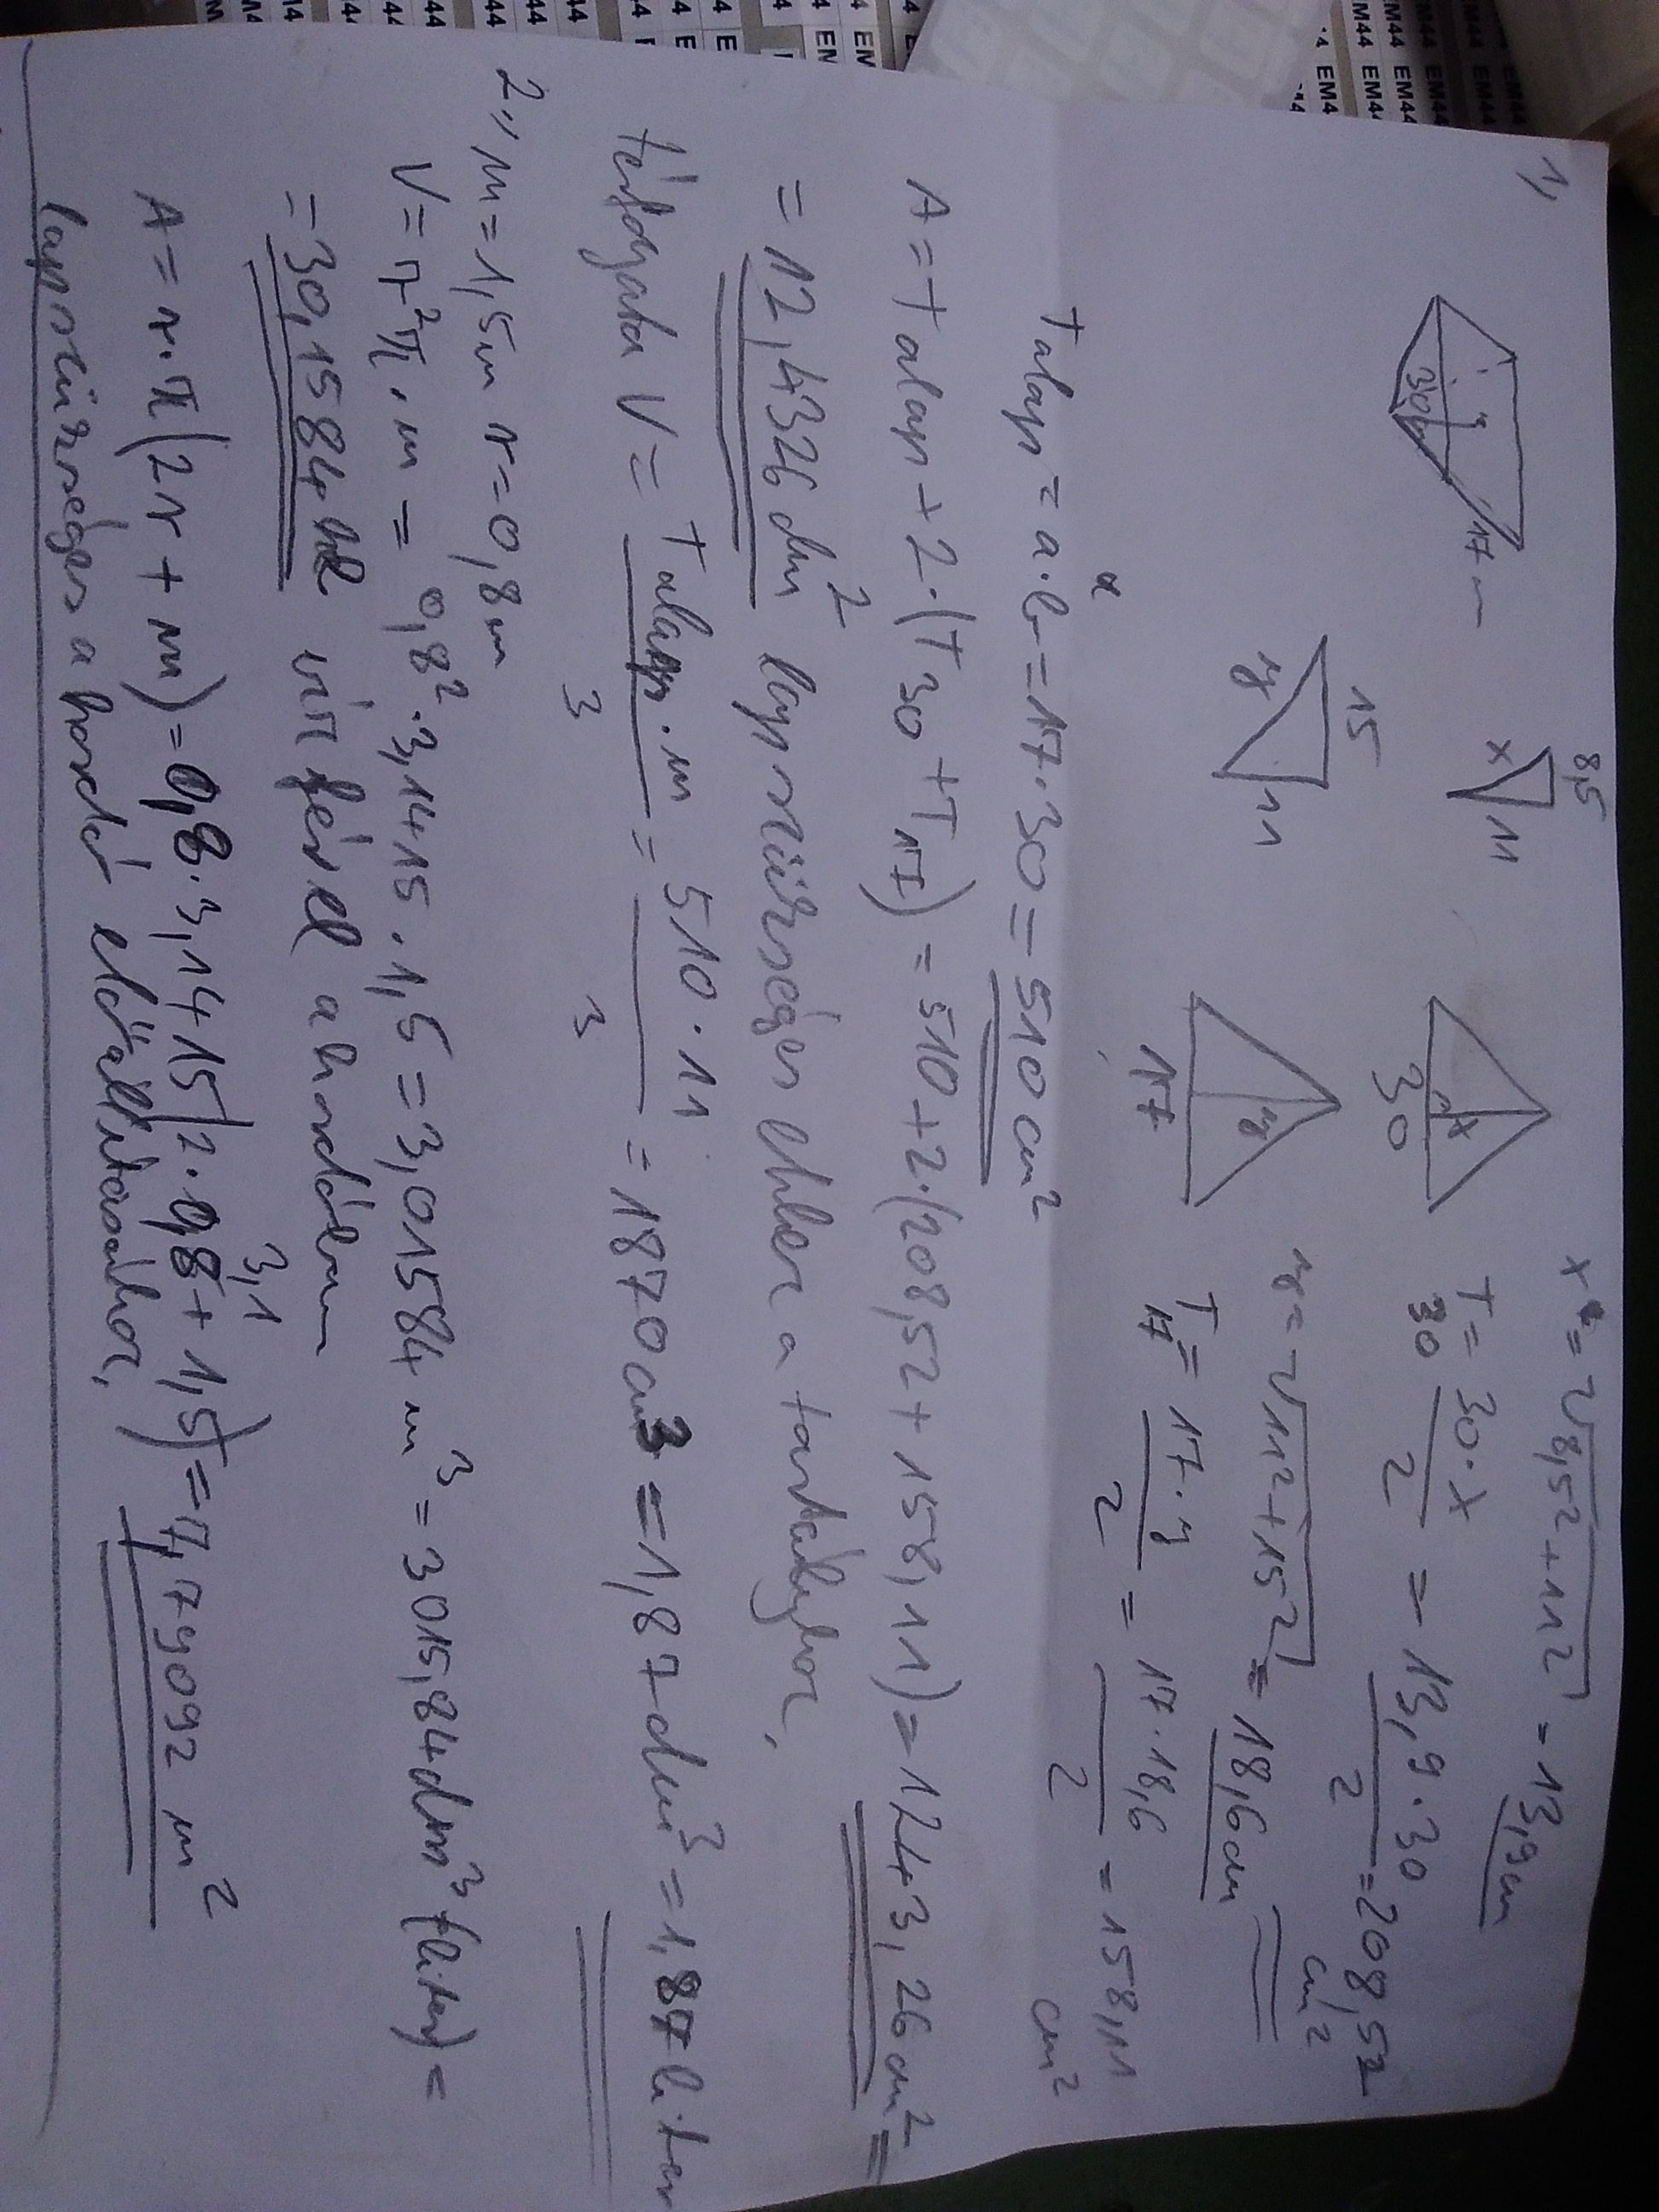 1,
30cm
17cm
8,5
11
x
30
x
x = √8,5² + 11² = 13,9cm
T30 = 30·x / 2 = 13,9·30 / 2 = 208,52 cm²
15
y
11
17
y
y = √11² + 15² = 18,6cm
T17 = 17·y / 2 = 17·18,6 / 2 = 158,11 cm²
Talap = a·b = 17·30 = 510cm²
A = Talap + 2·(T30 + T17) = 510 + 2·(208,52 + 158,11) = 1243,26cm² =
= 12,4326 dm² lap szükséges ehhez a tartályhoz,
térfogata V = Talap·m / 3 = 510·11 / 3 = 1870cm3 = 1,87dm³ = 1,87 liter
2,, m = 1,5m r = 0,8m
V = r²π·m = 0,8²·3,1415·1,5 = 3,01584 m³ = 3015,84dm³ (liter) =
= 30,1584 hl víz fér el a hordóban
A = r·π(2r + m) = 0,8·3,1415(2·0,8 + 1,5) = 7,79092 m²
3,1
lap szükséges a hordó előállításához,
EM44 EM44 EM44